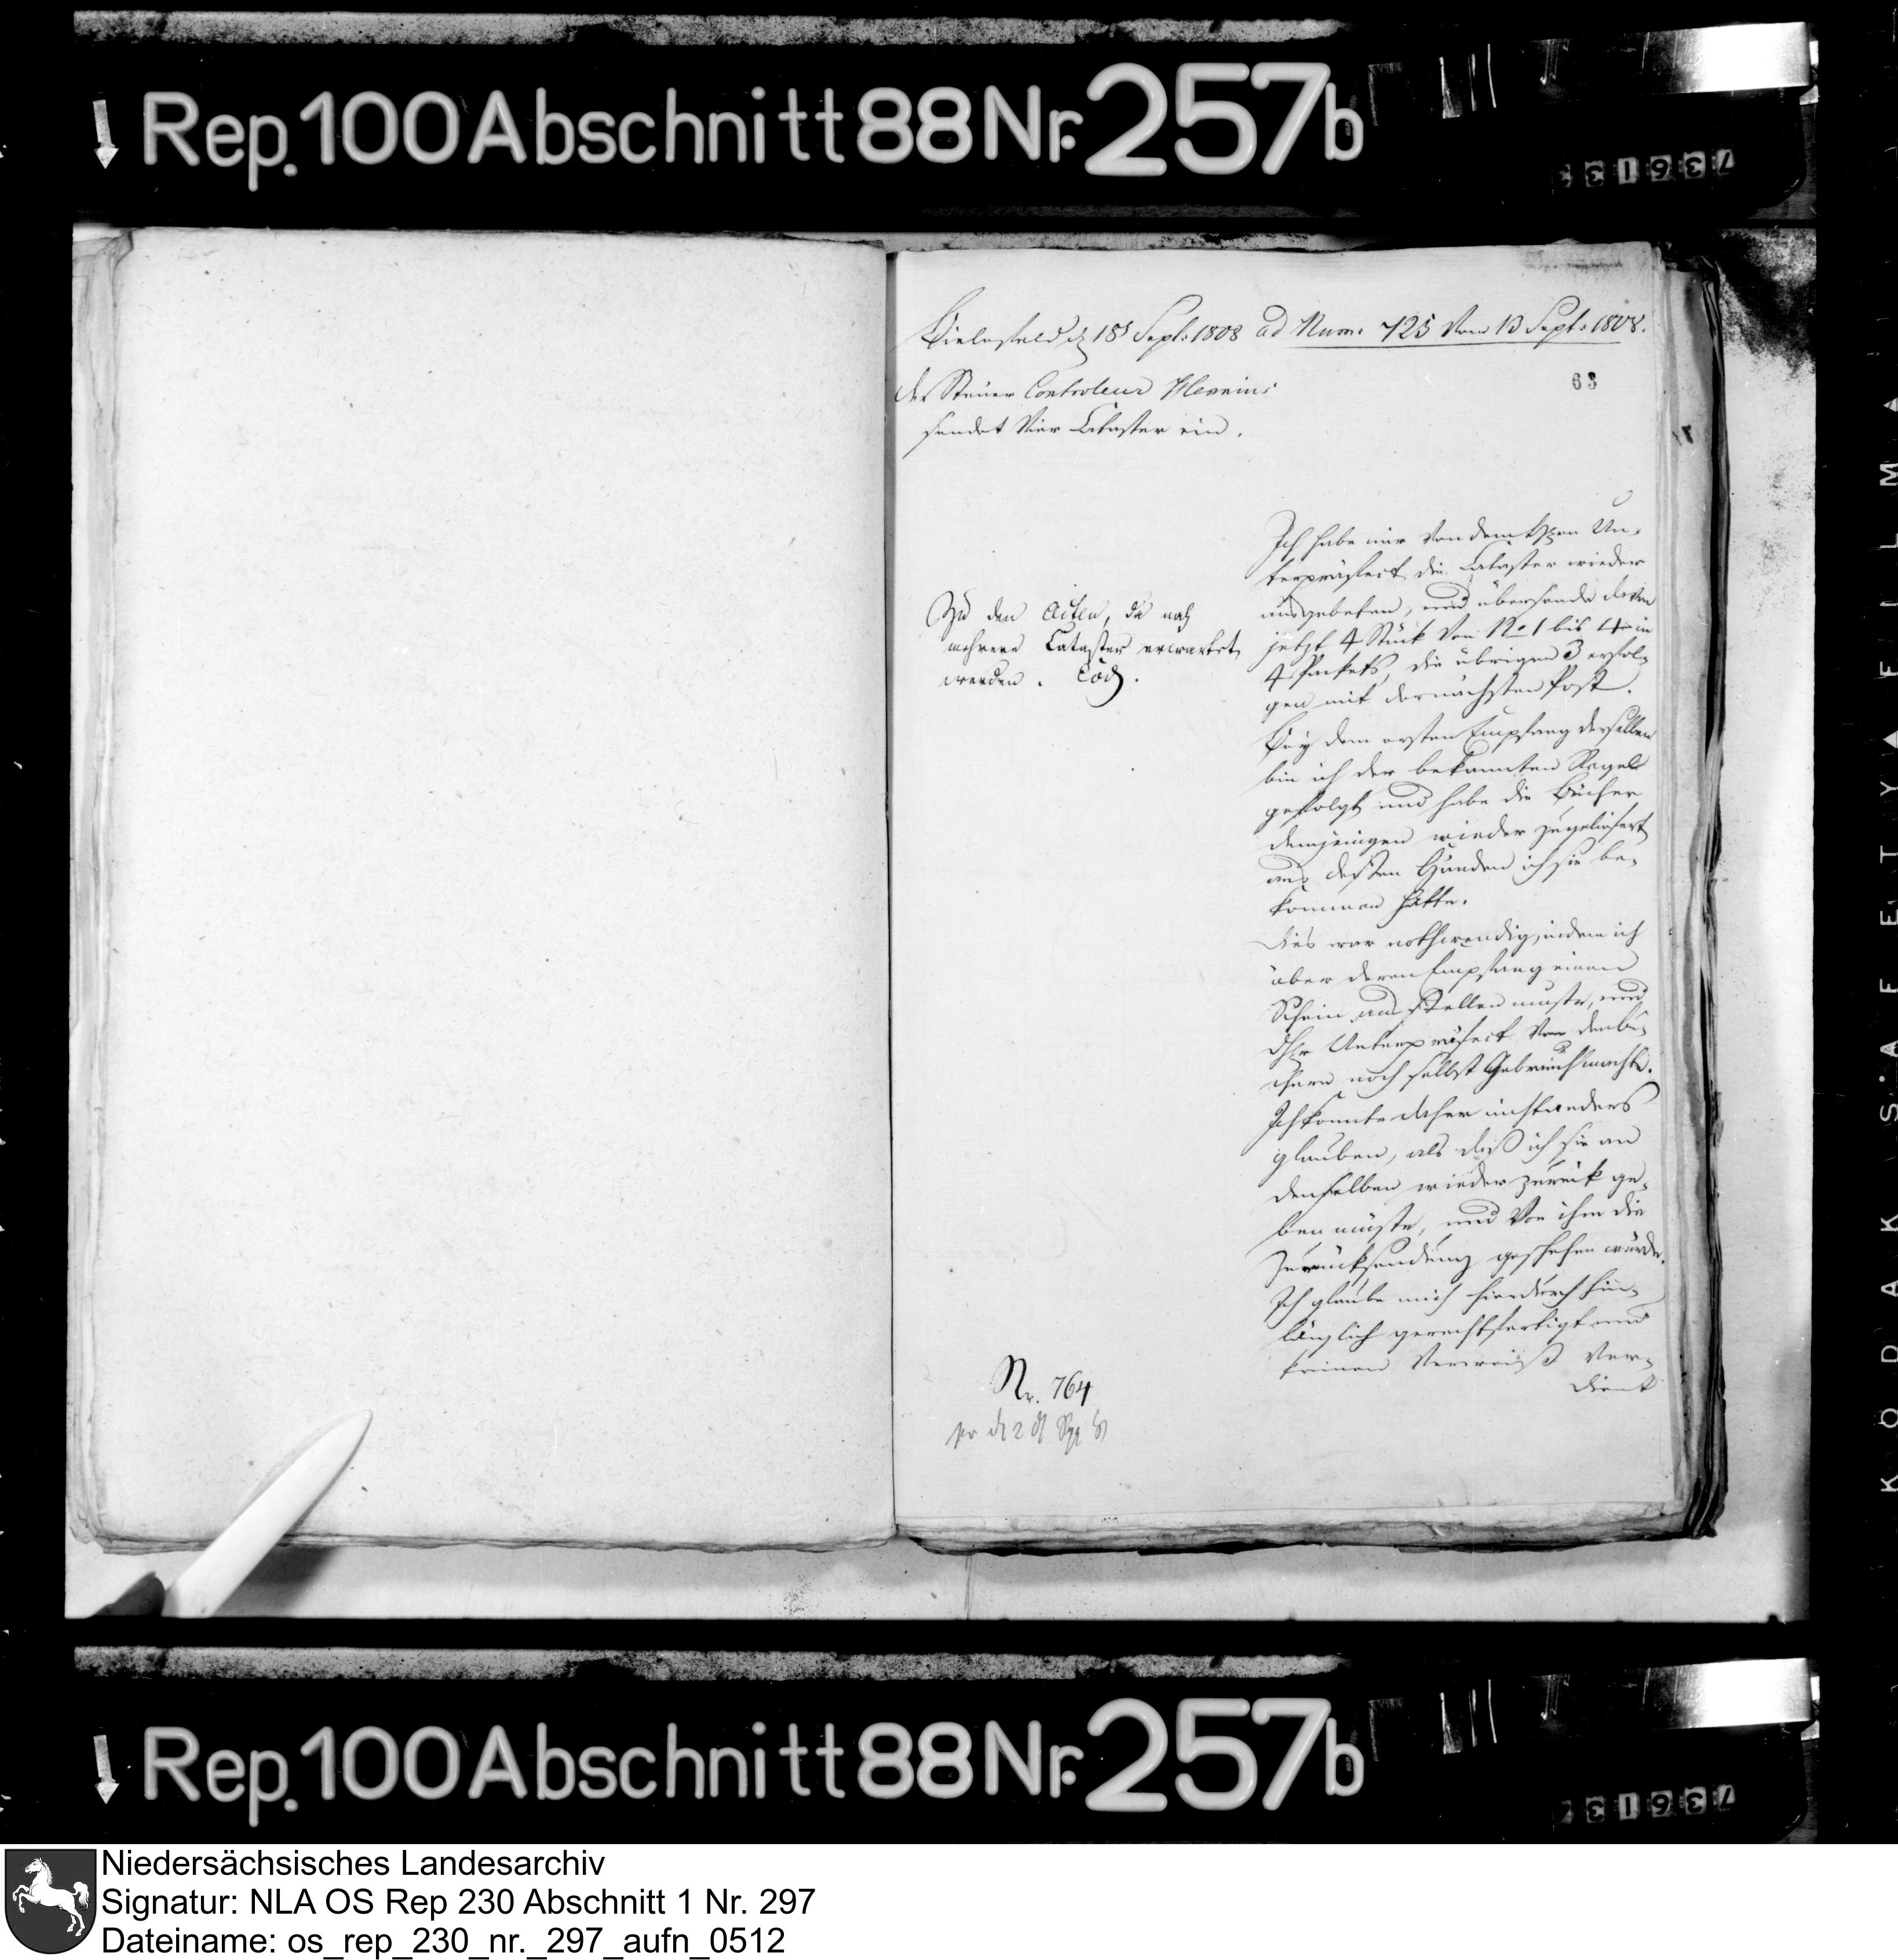 Rep. 100 Abschnitt 88 Nr. 257b
736133
Bielefeld d 18t Sept: 1808 ad Num. 725 Vom 13 Sept: 1808.
63
der Steuer Controleur
sendet Vier Cataster ein.
Ich habe mir von dem Hren Un-
terpräfect die Cataster wieder
ausgebeten, und übersende davon
jetzt 4 Stück von No 1 bis 4 in
4 Packets, die übrigen 3 erfol-
gen mit der nächsten Post.
Bey dem ersten Empfang derselben
bin ich der bekannten Regel
gefolgt und habe die Bücher
demjenigen wieder zugeliefert
aus dessen Händen ich sie be-
kommen hatte.
Dies war nothwendig, indem ich
über deren Empfang einen
Schein ausstellen muste, und
Unterpräfect von den Bü-
chern noch selbst Gebrauch machte.
Ich konnte daher nicht anders
glauben, als daß ich sie an
denselben wieder zurück ge-
ben müste, und von ihm die
Zurücksendung geschehen würde.
Ich glaube mich hierdurch hin-
länglich gerechtfertigt und
keinen Verweiß ver-
dient
Zu den Acten, da noch
mehrere Cataster erwartet
werden.
Nr. 764
Rep. 100 Abschnitt 88 Nr. 257b
73613
KODAK SAFETY FILM
Niedersächsisches Landesarchiv
Signatur: NLA OS Rep 230 Abschnitt 1 Nr. 297
Dateiname: os_rep_230_nr._297_aufn_0512